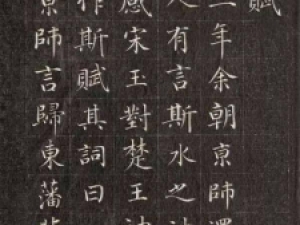 賦
三年余朝京師還
人有言斯水之神
感宋玉對楚王神
作斯賦其詞曰
京師言歸東藩背